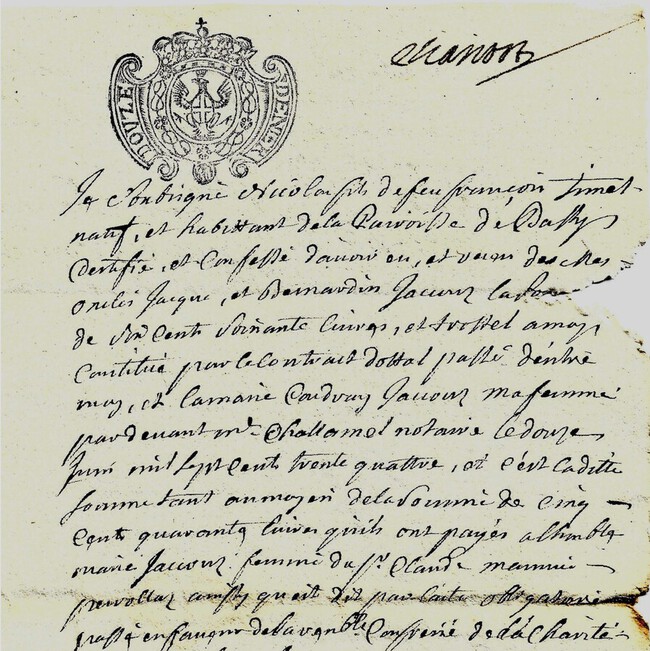 DOUZE DENIERS
Je Soubsigné Nicolas fils de feu françois
natif, et habittant de la Parroisse de Passy
Certifie, et Confesse d'avoir eu, et receu des mes
oncles Jacque, et Bernardin Jaccoux la so
de six Cents soixante livres, et a moy
Constitué par le Contract dottal passé d'entre
moy, et la marie Jaccoux ma femme
par devant mr Challamel notaire le douze
Juin mil sept Cents trente quattre, et c'est la ditte
somme tant au moyen de la somme de Cinq
Cents quarante livres qu'ils ont payés a l'honble
marie Jaccoux femme du Sr Claude
ainsy qu'est dit par l'acte obligatoire
passé en faveur de la venble Confrerie de la Charité